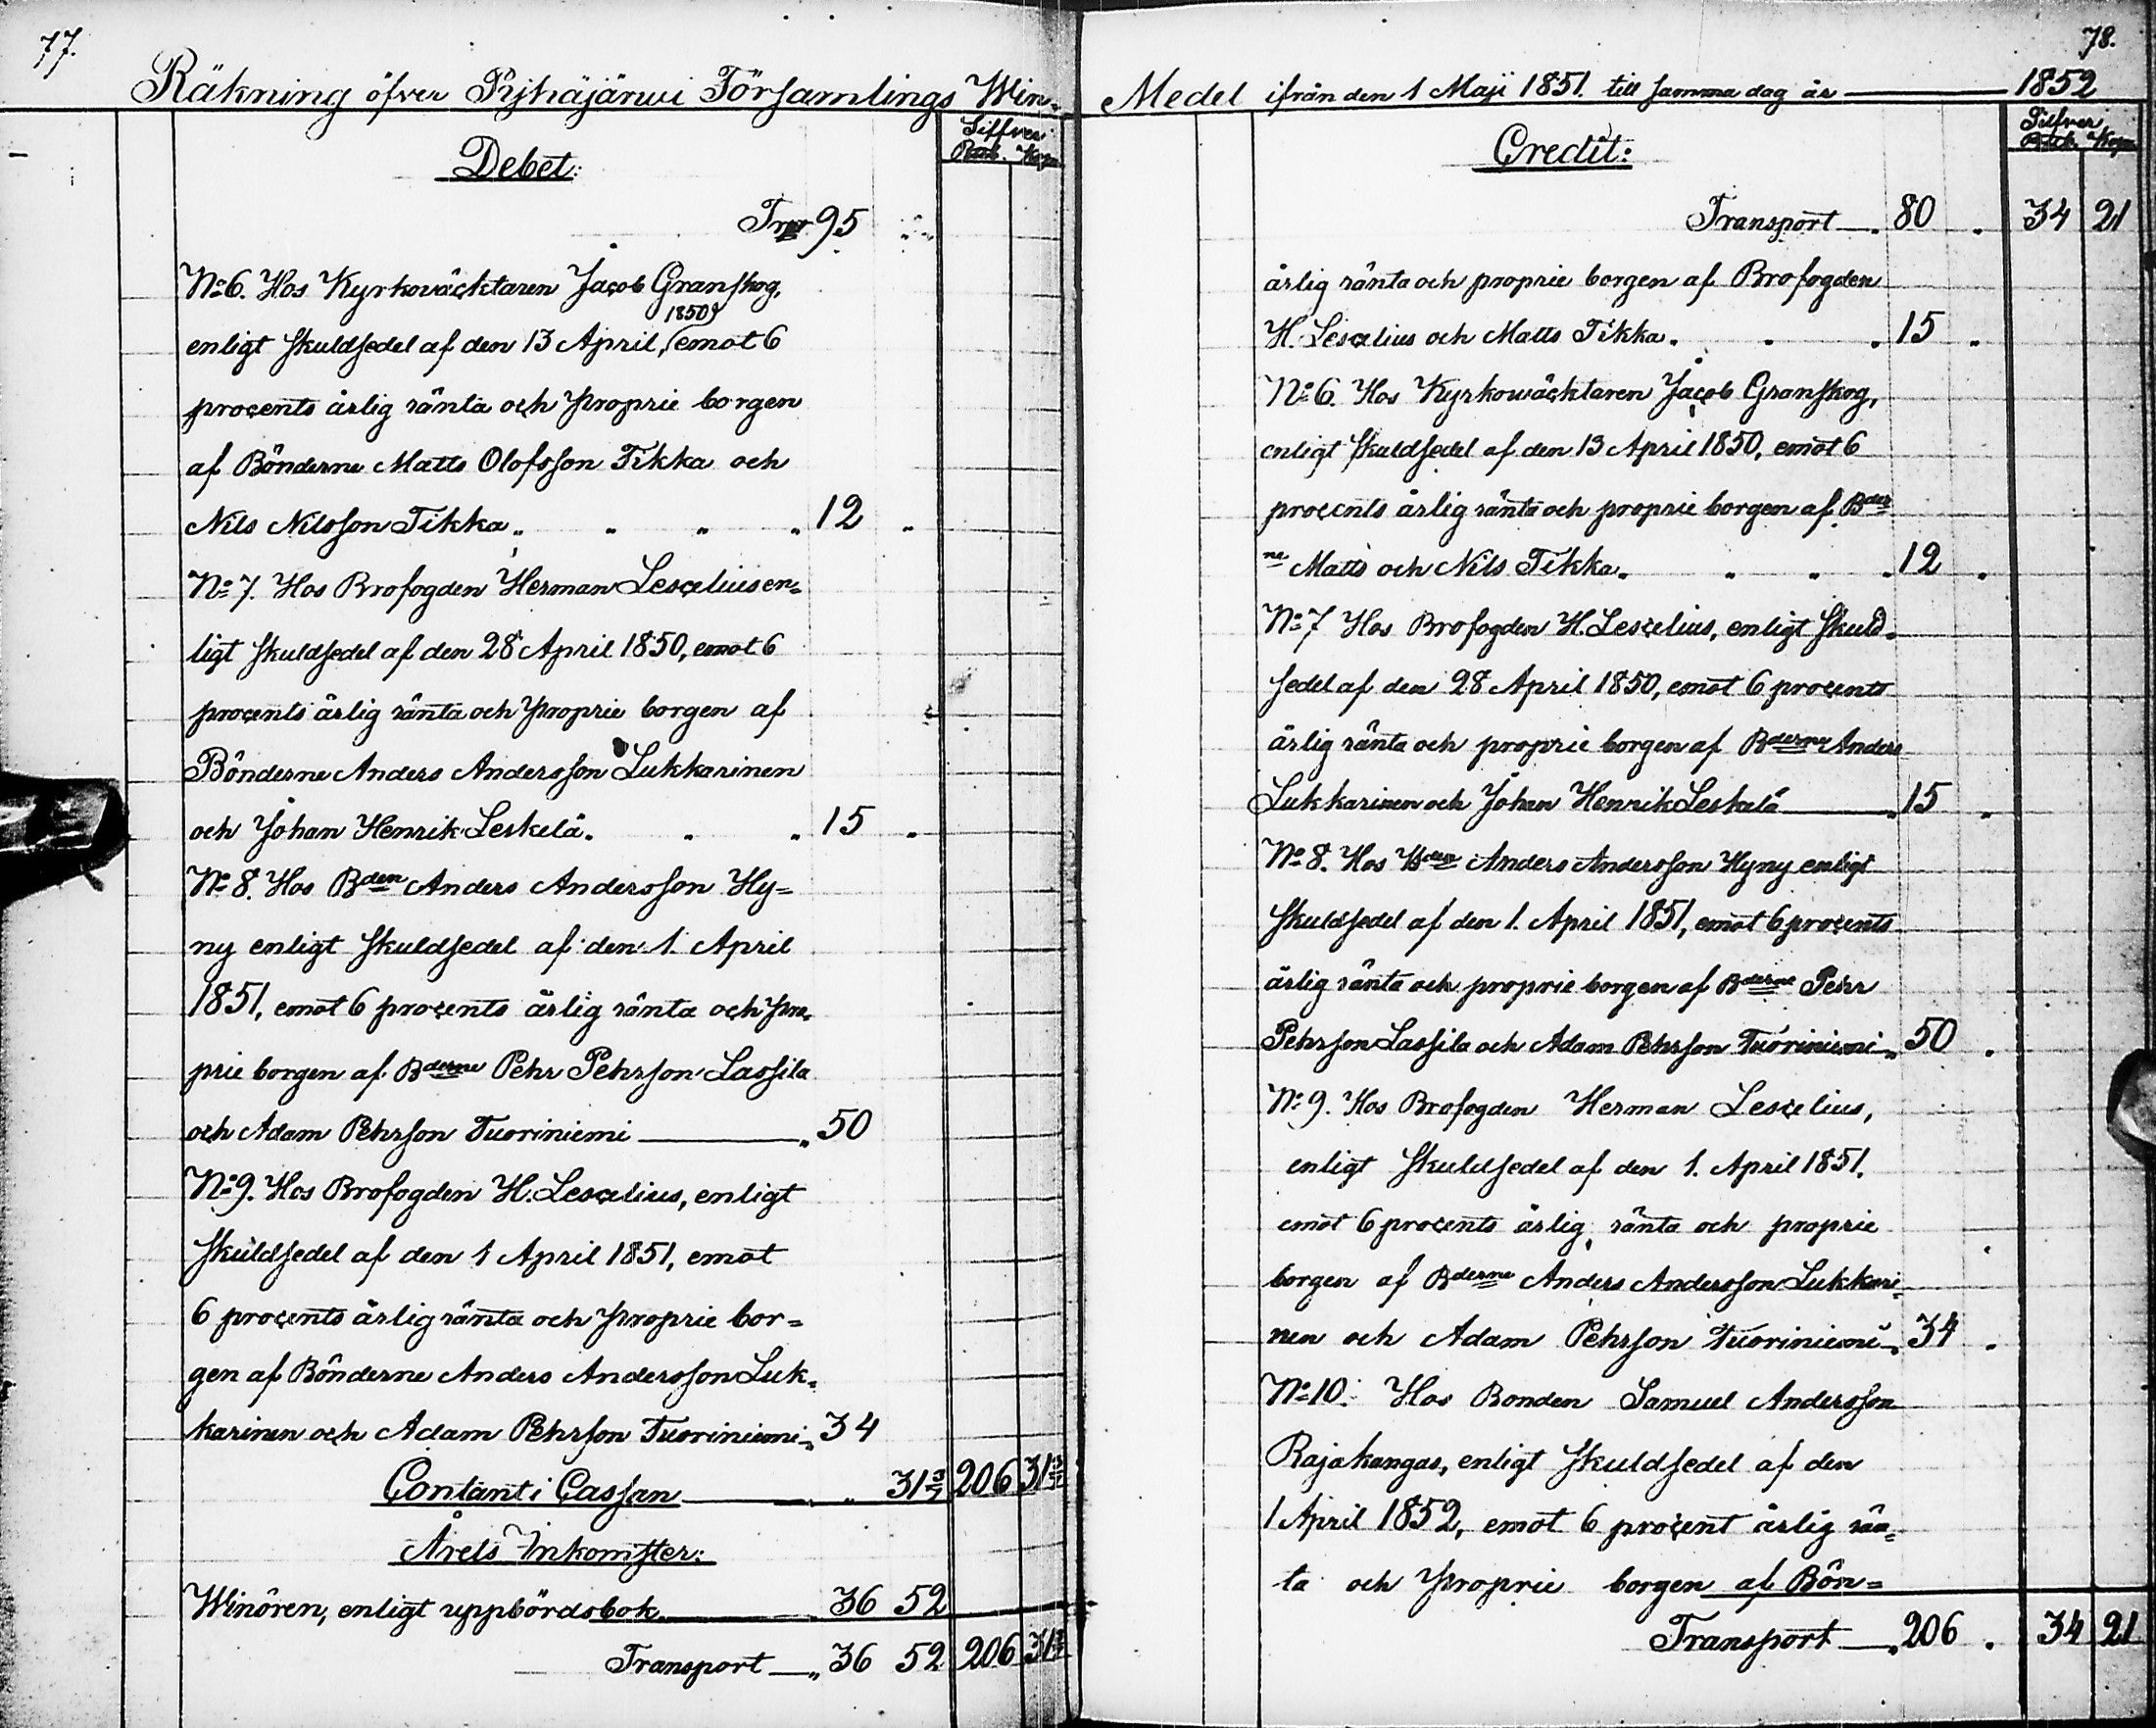 77.
Räkning öfver Pyhäjärwi Församlings Win-
Silfver
Rub. Kop.
Debet:
Trpr 95 " "
N:o 6. Hos Kyrkoväcktaren Jacob Granskog,
1850,
enligt skuldsedel af den 13 April, emot 6
procents årlig ränta och proprie borgen
af Bönderne Matts Olofsson Tikka och
Nils Nilsson Tikka " " " " 12 "
N:o 7. Hos Brofogden Herman Lescelius en-
ligt skuldsedel af den 28 April 1850, emot 6
procents årlig ränta och proprie borgen af
Bönderne Anders Andersson Lukkarinen
och Johan Henrik Leskelä " " " 15 "
N:o 8. Hos Bden Anders Andersson Hy=
ny enligt skuldsedel af den 1. April
1851, emot 6 procents årlig ränta och pro-
prie borgen af Bderne Pehr Pehrson Lassila
och Adam Pehrson Tuoriniemi " 50
N:o 9. Hos Brofogden H. Lescelius, enligt
skuldsedel af den 1 April 1851, emot
6 procents årlig ränta och proprie bor=
gen af Bönderne Anders Andersson Luk-
karinen och Adam Pehrson Tuoriniemi " 34
Contant i Cassan " 31 3/7 206 31 3/7
Årets Inkomster:
Winören, enligt uppbördsbok 36 52
Transport " 36 52 206 31 3/7
78.
Medel ifrån den 1 Maji 1851. till samma dag år 1852
Silfver
Rub. Kop.
Credit:
Transport " 80 " 34 21
årlig ränta och proprie borgen af Brofogden
H. Lescelius och Matts Tikka " " " 15 "
N:o 6. Hos Kyrkowäcktaren Jacob Granskog,
enligt skuldsedel af den 13 April 1850, emot 6
procents årlig ränta och proprie borgen af Bder
ne Matts och Nils Tikka " " " " 12 "
N:o 7 Hos Brofogden H. Lescelius, enligt skuld-
sedel af den 28 April 1850, emot 6 procents
årlig ränta och proprie borgen af Bderne Anders
Lukkarinen och Johan Henrik Leskelä " 15 "
N:o 8. Hos Bden Anders Andersson Hyny enligt
skuldsedel af den 1. April 1851, emot 6 procents
årlig ränta och proprie borgen af Bderne Pehr
Pehrson Lassila och Adam Pehrson Tuoriniemi " 50 "
N:o 9. Hos Brofogden Herman Lescelius,
enligt skuldsedel af den 1. April 1851.
emot 6 procents årlig ränta och proprie
borgen af Bderne Anders Andersson Lukkari-
nen och Adam Pehrson Tuoriniemi " 34 "
N:o 10. Hos Bonden Samuel Andersson
Rajakangas, enligt skuldsedel af den
1 April 1852, emot 6 procent årlig rän-
ta och proprie borgen af Bön=
Transport " 206 " 34 21